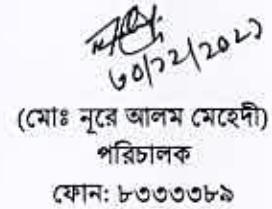 ৩০/১২/২০২১
(মোঃ নূরে আলম মেহেদী)
পরিচালক
ফোন: ৮৩৩৩৩৮৯